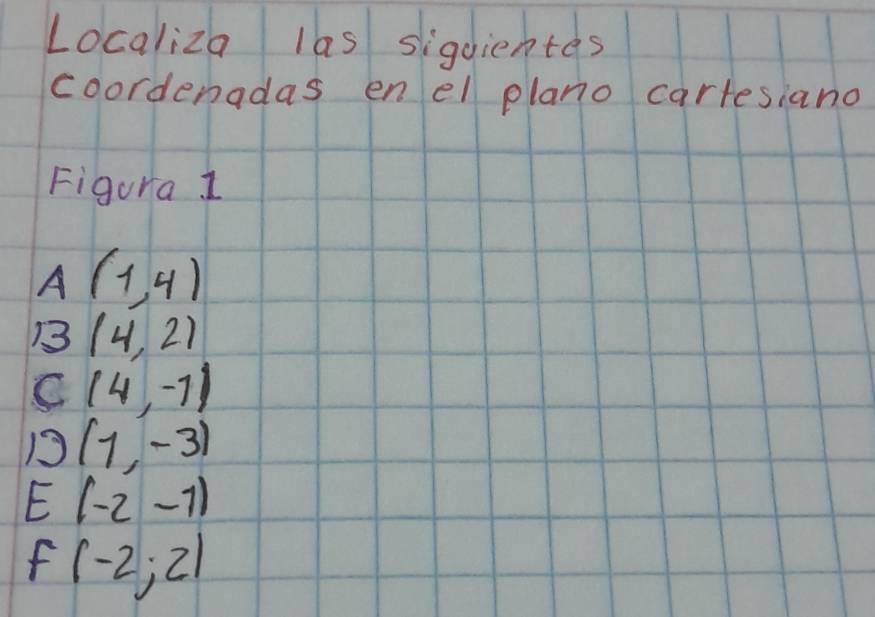 Localiza las siguientes
coordenadas en el plano cartesiano
Figura 1
A (1,4)
B (4,2)
C (4,-1)
D (1,-3)
E (-2 -1)
F (-2;2)